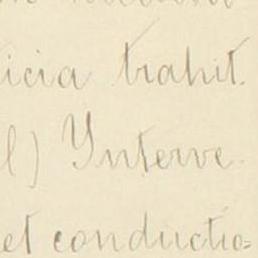 icia trahit.
l) Interve-
et conductio=